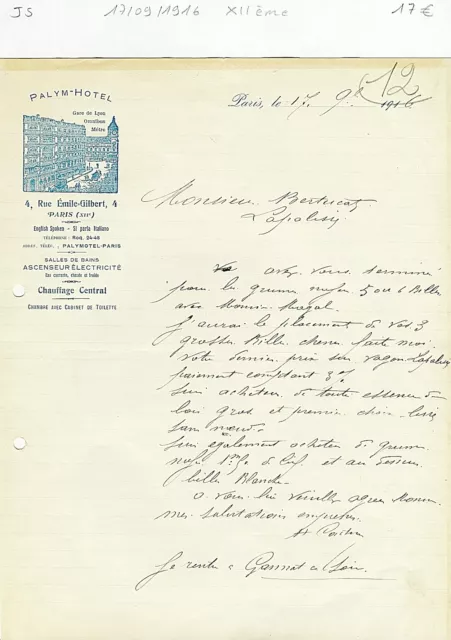 JS 17/09/1916 XIIème 17€
PALYM-HOTEL
Gare de Lyon
Omnibus
Métro
12
Paris, le 17 9bre 1916
4, Rue Émile-Gilbert, 4
PARIS (XIIe)
English Spoken - Si parla Italiano
TÉLÉPHONE: Roq. 24-48
ADRET. TÉLÉG.: PALYMOTEL-PARIS
SALLES DE BAINS
ASCENSEUR ÉLECTRICITÉ
Eau courante, chaude et froide
Chauffage Central
CHAMBRE AVEC CABINET DE TOILETTE
Monsieur Bertucat
Lapalisse
avez vous terminé
pour les grumes 5 ou 6 Billes
avec Monsieur
J'aurai le placement de vos 3
grosses Billes chenes faite moi
votre dernier prix sur wagon Lapalisse
paiement comptant 3%
suis acheteur de toute essence de
bois gros et premier choix
sans nœuds
suis également acheteur de grumes
et au dessus
billes Blanche
a vous lire veuillez agreer Monsieur
mes salutations empressées
Je rentre a Gannat ce Soir